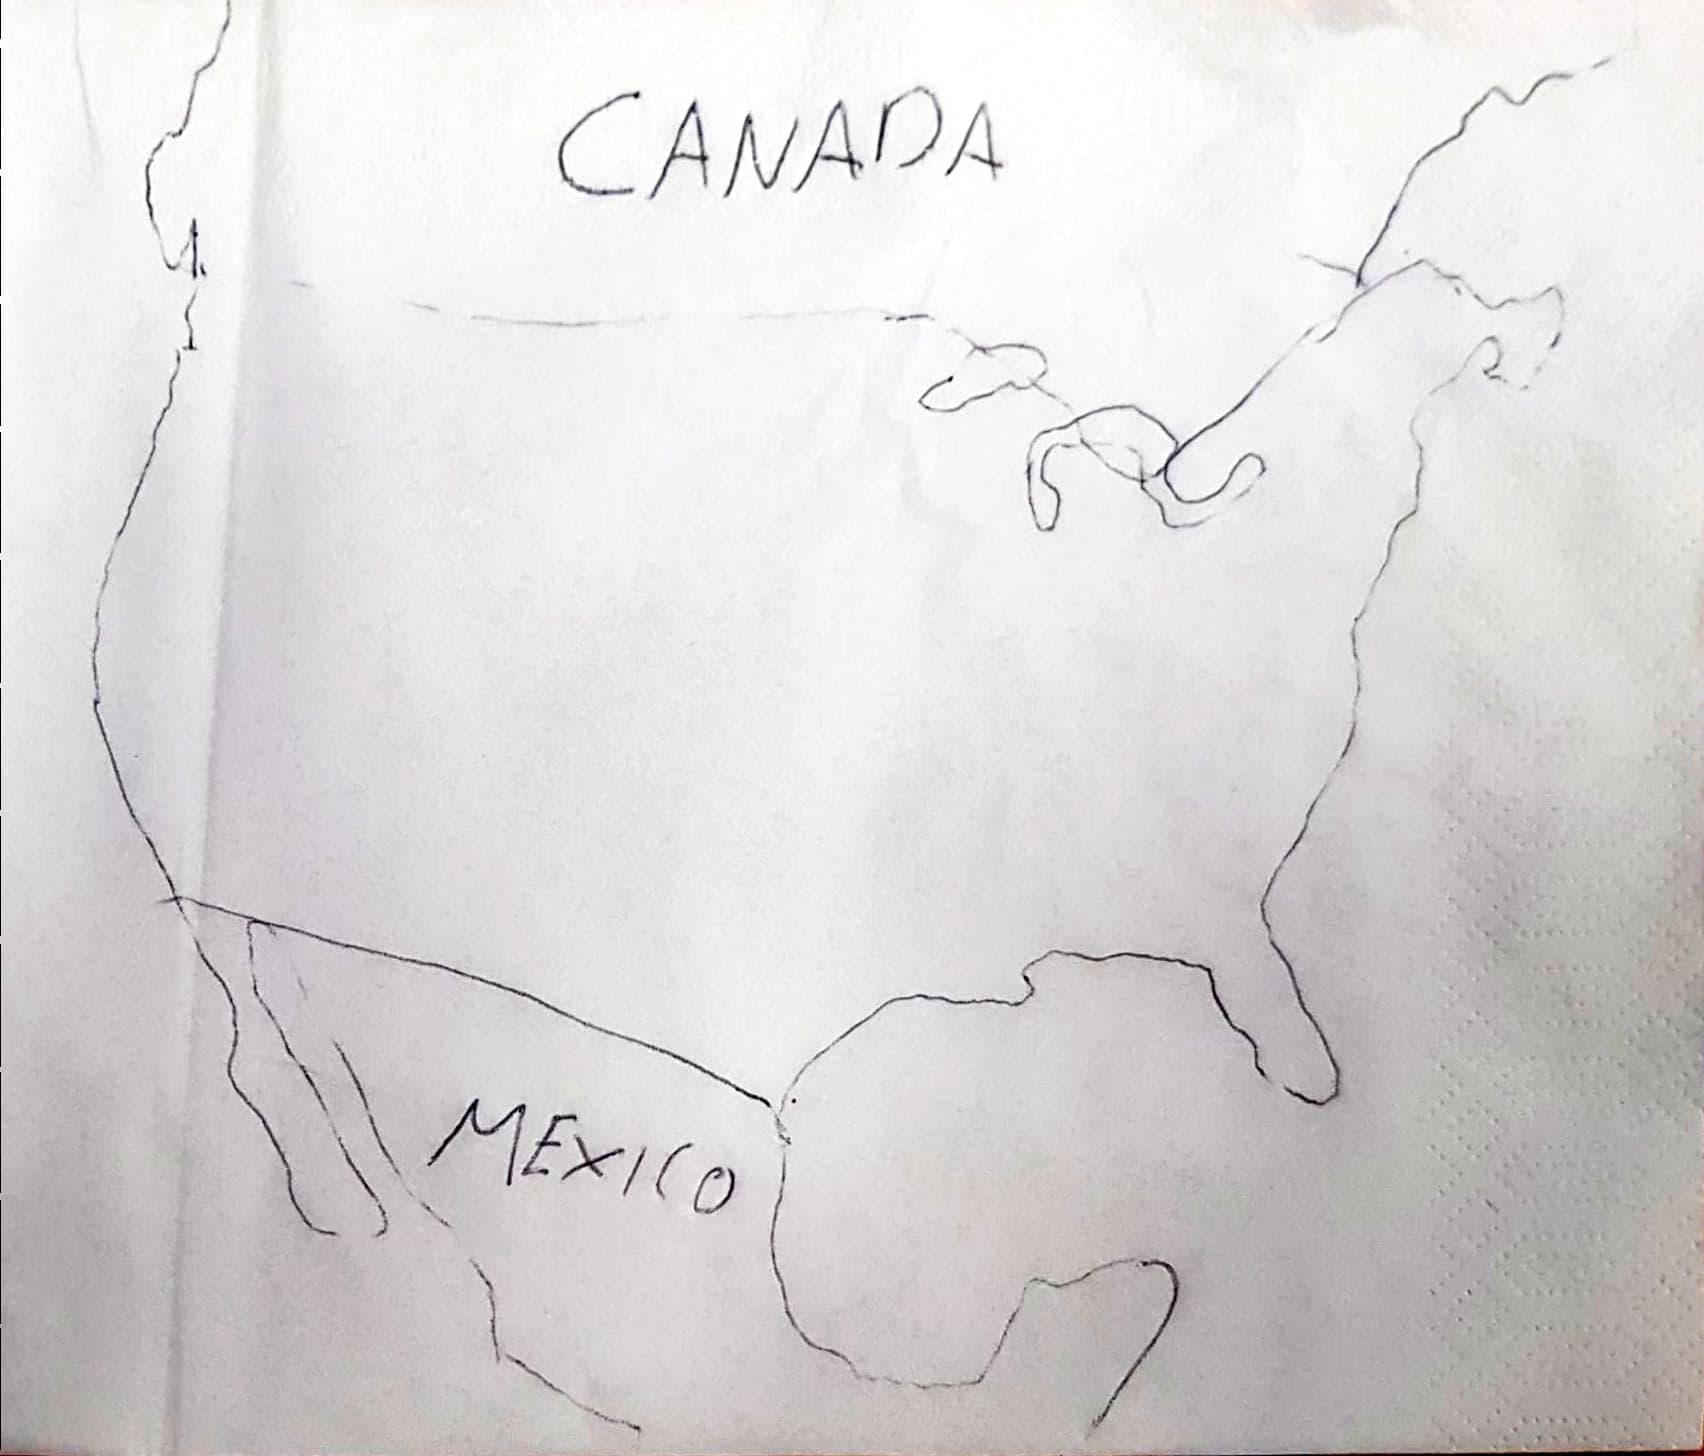 CANADA
MEXICO